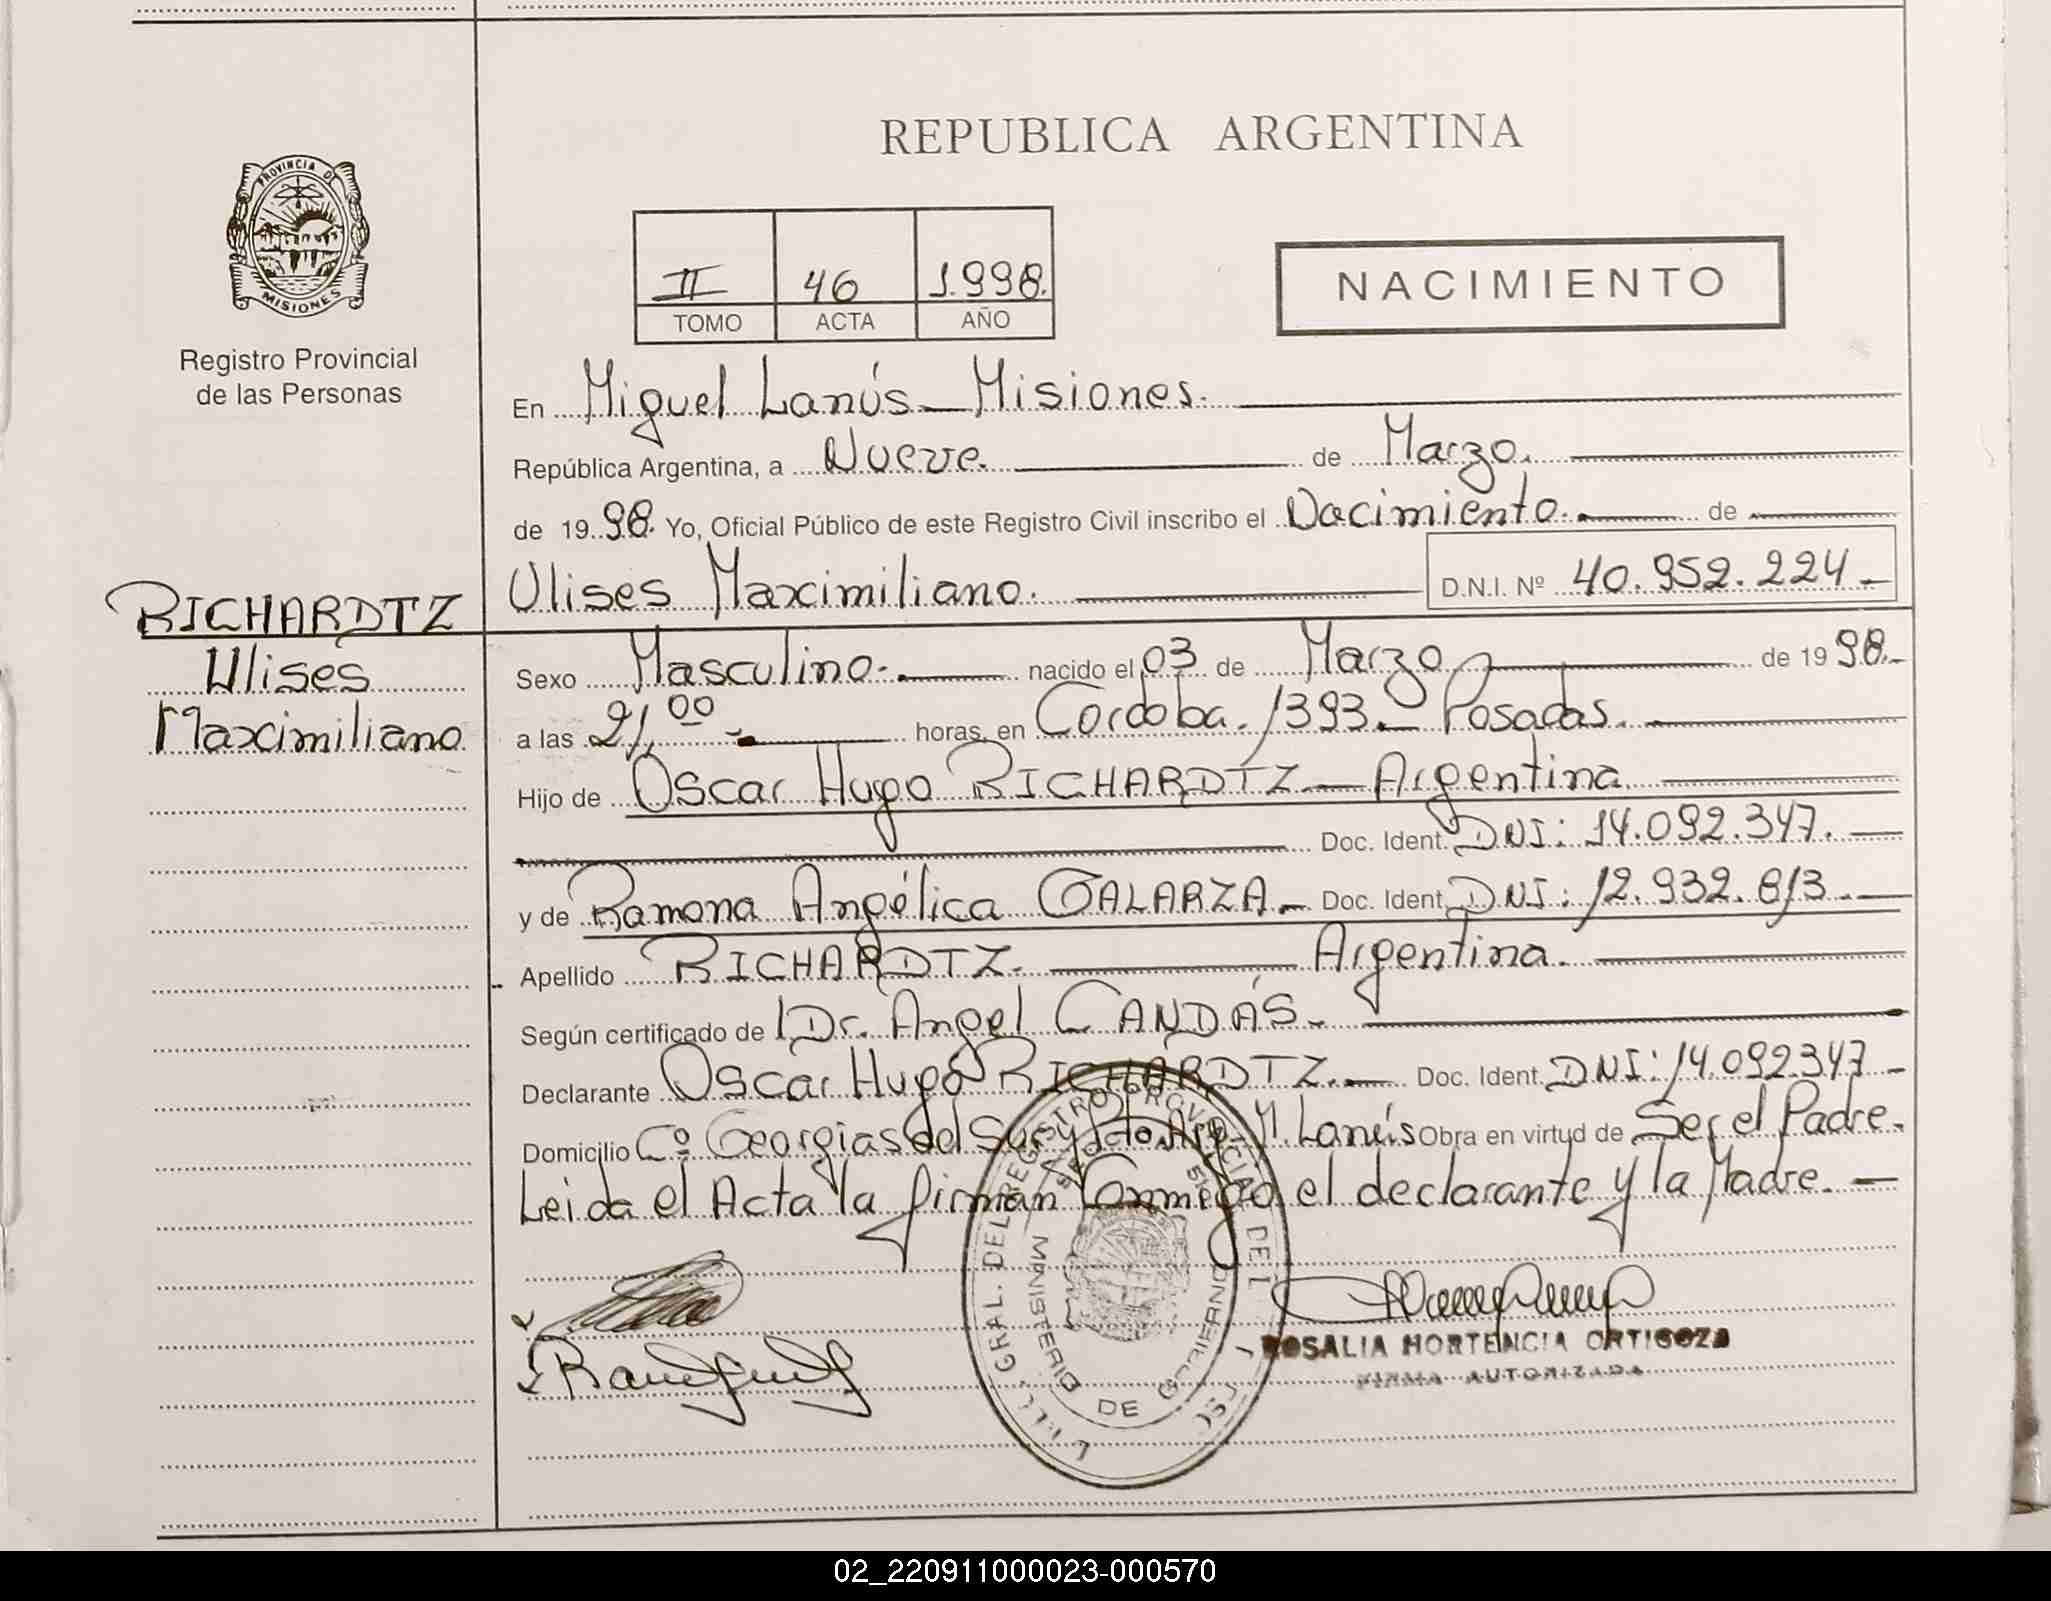 REPUBLICA ARGENTINA
PROVINCIA DE
MISIONES
Registro Provincial
de las Personas
II 46 1.998.
TOMO ACTA AÑO
NACIMIENTO
En Miguel Lanús - Misiones.
República Argentina, a Nueve. de Marzo.
de 19 98. Yo, Oficial Público de este Registro Civil inscribo el Nacimiento. de
Ulises Maximiliano. D.N.I. Nº 40.952.224-
RICHARDTZ
Ulises
Maximiliano
Sexo Masculino. nacido el 03 de Marzo de 19 98.-
a las 21,00 - horas, en Cordoba. 1393. - Posadas.
Hijo de Oscar Hugo RICHARDTZ. - Argentina
Doc. Ident. DNI: 14.092.347. -
y de Ramona Angélica GALARZA. - Doc. Ident. DNI: 12.932.813. -
Apellido RICHARDTZ. Argentina.
Según certificado de Dr. Angel CANDÁS. -
Declarante Oscar Hugo RICHARDTZ. - Doc. Ident. DNI: 14.092347 -
Domicilio Cº Georgias del Sur y Arg. M. Lanús Obra en virtud de Ser el Padre.
Leida el Acta la firman Conmigo el declarante y la Madre. -
GRAL. DEL REGISTRO PROVINCIAL DE L
MINISTERIO DE GOBIERNO
ROSALIA HORTENCIA ORTIGOZA
FIRMA AUTORIZADA
02_220911000023-000570